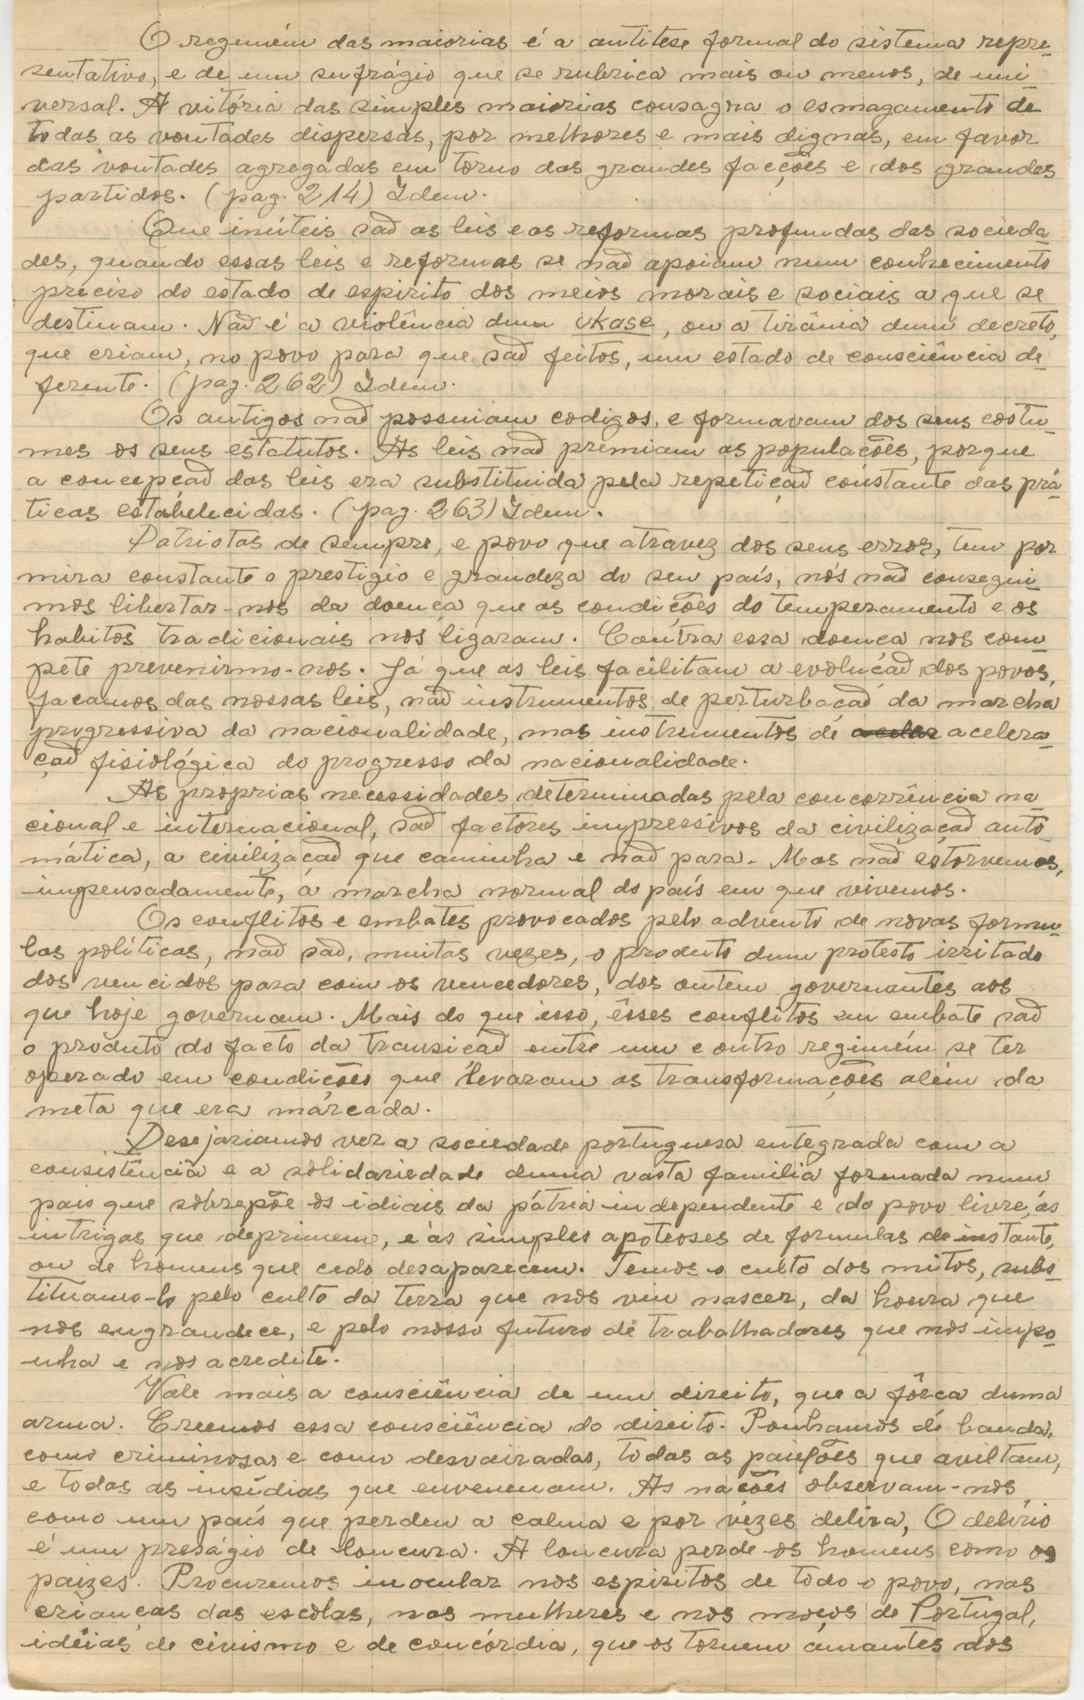 O regemém das maiorias é a antitese formal do sistema repre-
sentativo, e de um sufrágio que se rubrica mais ou menos, de uni
versal. A vitória das simples maiorias consagra o esmagamento de
todas as vontades dispersas, por melhores e mais dignas, em favor
das vontades agregadas em torno das grandes facções e dos grandes
partidos. (pag. 214) Idem.
Que inúteis são as leis e as reformas profundas das socieda-
des, quando essas leis e reformas se não apoiam num conhecimento
preciso do estado de espirito dos meios morais e sociais a que se
destinam. Não é a violência dum ukase, ou a tirânia dum decreto,
que criam, no povo para que são feitos, um estado de consciência de
ferente. (pag. 262) Idem.
Os antigos não possuiam codigos, e formavam dos seus costu-
mes os seus estatutos. As leis não premiam as populações, porque
a concepção das leis era substituida pela repetição constante das prá-
ticas estabelecidas. (pag. 263) Idem.
Patriotas de sempre, e povo que atravez dos seus erros, tem por
mira constante o prestigio e grandeza do seu país, nós não consegui-
mos libertar-nos da doença que as condições do temperamento e os
habitos tradicionais nos ligaram. Contra essa doença nos com-
pete prevenirmo-nos. Já que as leis facilitam a evolução dos povos,
façamos das nossas leis, não instrumentos de perturbação da marcha
progressiva da nacionalidade, mas instrumentos de acelera-
ção fisiológica do progresso da nacionalidade.
As proprias necessidades determinadas pela concorrência na-
cional e internacional, são factores impressivos da civilização auto-
mática, a civilização que caminha e não para. Mas não estorvemos,
impensadamente, á marcha normal do país em que vivemos.
Os conflitos e embates provocados pelo advento de novas formu-
las políticas, não são, muitas vezes, o produto dum protesto irritado
dos vencidos para com os vencedores, dos ontem governantes aos
que hoje governam. Mais do que isso, êsses conflitos em embate são
o produto do facto da transição entre um e outro regimém se ter
operado em condições que levaram as transformações além da
meta que era márcada.
Desejariamos ver a sociedade portuguesa entegrada com a
consistência e a solidariedade duma vasta familia formada num
pais que sobrepõe os idiais da pátria independente e do povo livre, ás
intrigas que deprimem, e ás simples apoteoses de formulas de instante,
ou de homens que cedo desaparecem. Temos o culto dos mitos, subs-
tituamo-lo pelo culto da terra que nos viu nascer, da honra que
nos engrandece, e pelo nosso futuro de trabalhadores que nos impo-
nha e nos acredite.
Vale mais a consciência de um direito, que a fôrça duma
arma. Creemos essa consciência do direito. Ponhamos de banda,
como criminosas e como desvairadas, todas as paixões que aviltam,
e todas as insídias que envenenam. As nações observam-nos
como um país que perdeu a calma e por vêzes delira, O delírio
é um preságio de loucura. A loucura perde os homens como os
paizes. Procuremos inocular nos espiritos de todo o povo, nas
crianças das escolas, nas mulheres e nos moços de Portugal,
idéias de civismo e de concórdia, que os tornem ámantes dos